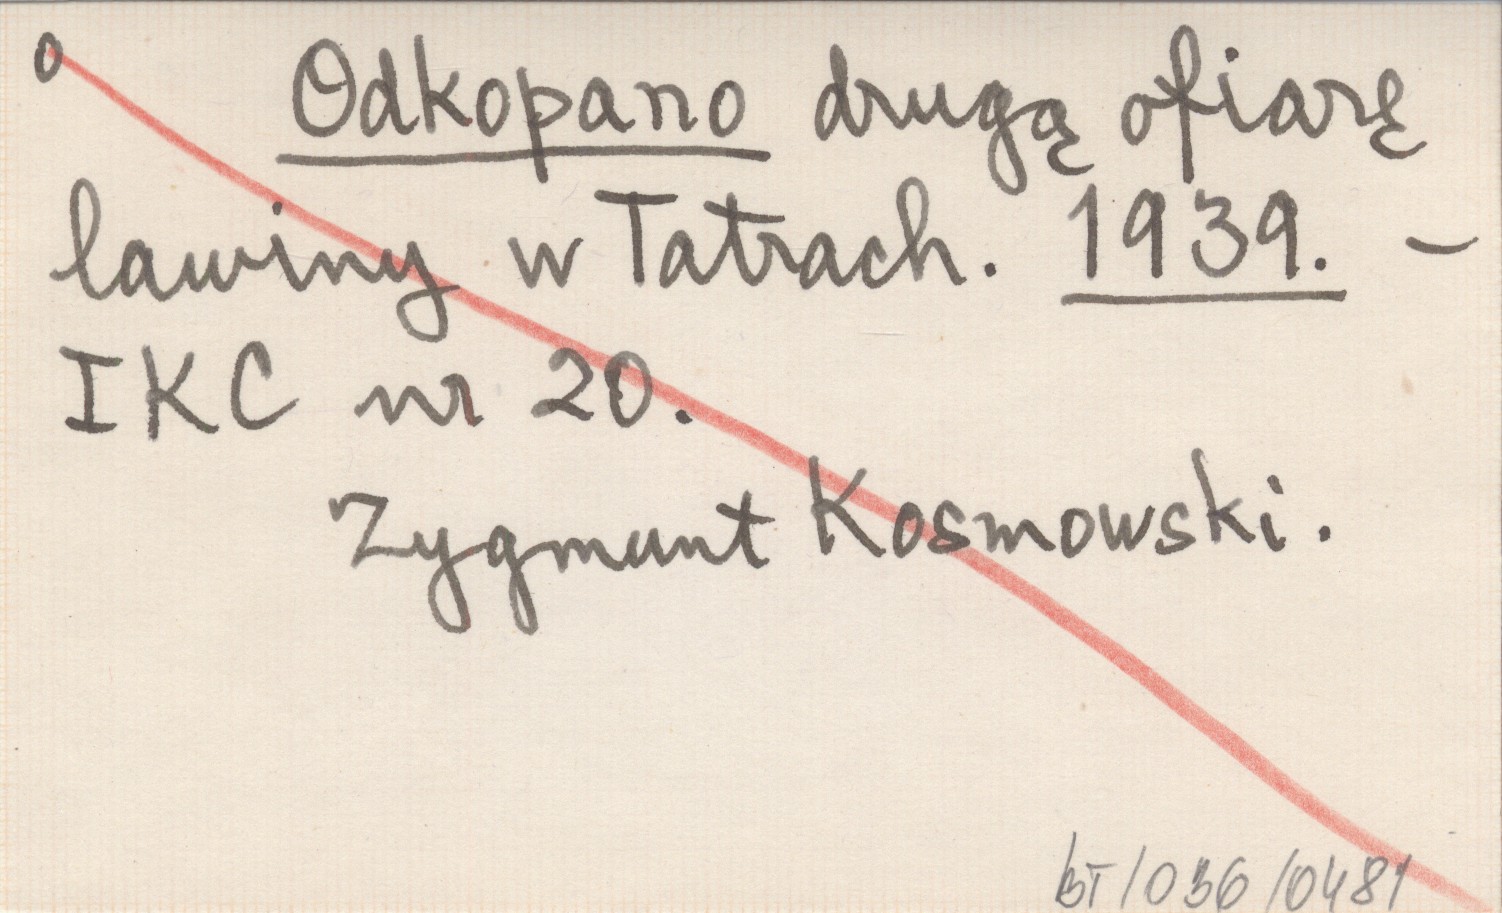 o
Odkopano drugą ofiarę
lawiny w Tatrach. 1939. –
IKC nr 20.
Zygmunt Kosmowski.
BT/036/0481